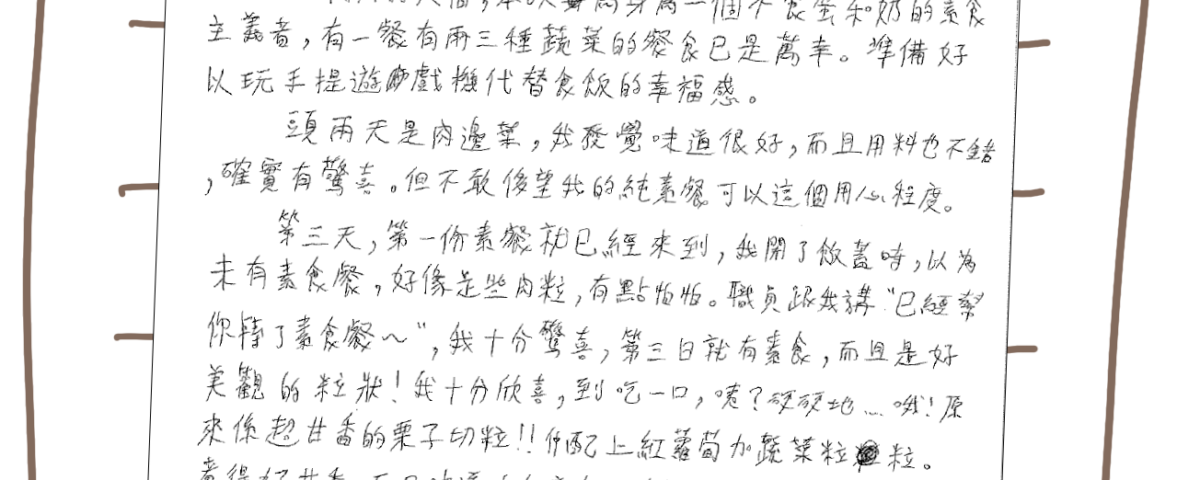 一個不食蛋和奶的素食
主義者，有一餐有兩三種蔬菜的餐食已是萬幸。準備好
以玩手提遊戲機代替食飯的幸福感。
頭兩天是肉邊菜，我發覺味道很好，而且用料也不錯
，確實有驚喜。但不敢後望我的純素餐可以這個用心程度。
第三天，第一份素餐就已經來到，我開了飯蓋時，以為
未有素食餐，好像是些肉粒，有點怕怕。職員跟我講"已經幫
你轉了素食餐～"，我十分驚喜，第三日就有素食，而且是好
美觀的粒狀！我十分欣喜，到吃一口，咦？硬硬地...哦！原
來係超甘香的栗子切粒!!仲配上紅蘿蔔加蔬菜粒粒。